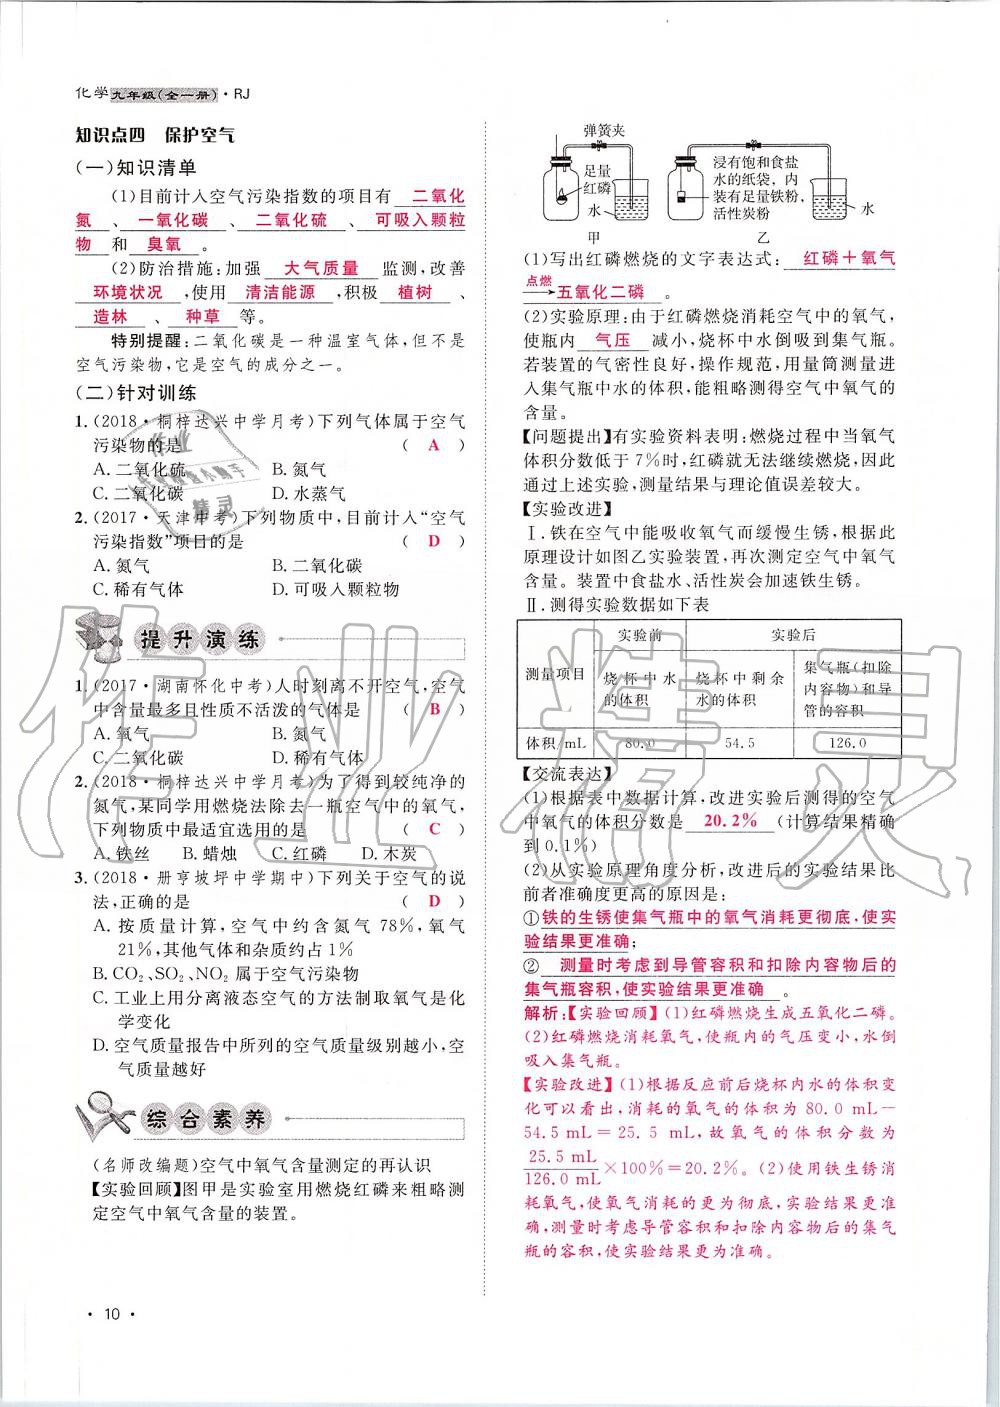 化学九年级(全一册)·RJ
知识点四 保护空气
(一)知识清单
(1)目前计入空气污染指数的项目有 二氧化
氮 、 一氧化碳 、 二氧化硫 、 可吸入颗粒
物 和 臭氧 。
(2)防治措施:加强 大气质量 监测,改善
环境状况 ,使用 清洁能源 ,积极 植树 、
造林 、 种草 等。
特别提醒:二氧化碳是一种温室气体,但不是
空气污染物,它是空气的成分之一。
(二)针对训练
1.(2018·桐梓达兴中学月考)下列气体属于空气
污染物的是 ( A )
A.二氧化硫 B.氮气
C.二氧化碳 D.水蒸气
2.(2017·天津中考)下列物质中,目前计入“空气
污染指数”项目的是 ( D )
A.氮气 B.二氧化碳
C.稀有气体 D.可吸入颗粒物
提升演练
1.(2017·湖南怀化中考)人时刻离不开空气,空气
中含量最多且性质不活泼的气体是 ( B )
A.氧气 B.氮气
C.二氧化碳 D.稀有气体
2.(2018·桐梓达兴中学月考)为了得到较纯净的
氮气,某同学用燃烧法除去一瓶空气中的氧气,
下列物质中最适宜选用的是 ( C )
A.铁丝 B.蜡烛 C.红磷 D.木炭
3.(2018·册亨坡坪中学期中)下列关于空气的说
法,正确的是 ( D )
A.按质量计算,空气中约含氮气 78%,氧气
21%,其他气体和杂质约占1%
B.CO₂、SO₂、NO₂ 属于空气污染物
C.工业上用分离液态空气的方法制取氧气是化
学变化
D.空气质量报告中所列的空气质量级别越小,空
气质量越好
综合素养
(名师改编题)空气中氧气含量测定的再认识
【实验回顾】图甲是实验室用燃烧红磷来粗略测
定空气中氧气含量的装置。
弹簧夹
足量
红磷
水
甲
浸有饱和食盐
水的纸袋,内
装有足量铁粉,
活性炭粉
水
乙
(1)写出红磷燃烧的文字表达式: 红磷+氧气
点燃
→五氧化二磷 。
(2)实验原理:由于红磷燃烧消耗空气中的氧气,
使瓶内 气压 减小,烧杯中水倒吸到集气瓶。
若装置的气密性良好,操作规范,用量筒测量进
入集气瓶中水的体积,能粗略测得空气中氧气的
含量。
【问题提出】有实验资料表明:燃烧过程中当氧气
体积分数低于7%时,红磷就无法继续燃烧,因此
通过上述实验,测量结果与理论值误差较大。
【实验改进】
Ⅰ.铁在空气中能吸收氧气而缓慢生锈,根据此
原理设计如图乙实验装置,再次测定空气中氧气
含量。装置中食盐水、活性炭会加速铁生锈。
Ⅱ.测得实验数据如下表
实验前 实验后
测量项目 烧杯中水的体积 烧杯中剩余水的体积 集气瓶(扣除内容物)和导管的容积
体积/mL 80.0 54.5 126.0
【交流表达】
(1)根据表中数据计算,改进实验后测得的空气
中氧气的体积分数是 20.2% (计算结果精确
到0.1%)
(2)从实验原理角度分析,改进后的实验比
前者准确度更高的原因是:
①铁的生锈使集气瓶中的氧气消耗更彻底,使实
验结果更准确;
② 测量时考虑到导管容积和扣除内容物后的
集气瓶容积,使实验结果更准确 。
解析:【实验回顾】(1)红磷燃烧生成五氧化二磷。
(2)红磷燃烧消耗氧气,使瓶内的气压变小,水倒
吸入集气瓶。
【实验改进】(1)根据反应前后烧杯内水的体积变
化可以看出,消耗的氧气的体积为 80.0 mL－
54.5 mL＝25.5 mL,故氧气的体积分数为
25.5 mL/126.0 mL×100%＝20.2%。(2)使用铁生锈消
耗氧气,使氧气消耗的更为彻底,实验结果更准
确,测量时考虑导管容积和扣除内容物后的集气
瓶的容积,使实验结果更为准确。
·10·
作业精灵